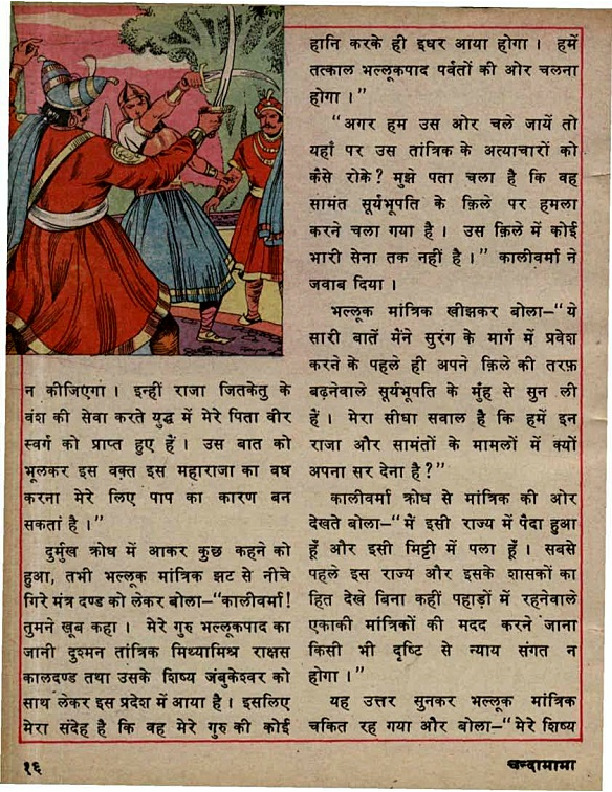 न कीजिएगा । इन्हीं राजा जितकेतु के
वंश की सेवा करते युद्ध में मेरे पिता वीर
स्वर्ग को प्राप्त हुए हैं । उस बात को
भूलकर इस वक़्त इस महाराजा का बध
करना मेरे लिए पाप का कारण बन
सकता है ।"
दुर्मुख क्रोध में आकर कुछ कहने को
हुआ, तभी भल्लूक मांत्रिक झट से नीचे
गिरे मंत्र दण्ड को लेकर बोला–"कालीवर्मा!
तुमने खूब कहा । मेरे गुरु भल्लूकपाद का
जानी दुश्मन तांत्रिक मिथ्यामिश्र राक्षस
कालदण्ड तथा उसके शिष्य जंबुकेश्वर को
साथ लेकर इस प्रदेश में आया है । इसलिए
मेरा संदेह है कि वह मेरे गुरु की कोई
हानि करके ही इधर आया होगा । हमें
तत्काल भल्लूकपाद पर्वतों की ओर चलना
होगा ।"
"अगर हम उस ओर चले जायें तो
यहाँ पर उस तांत्रिक के अत्याचारों को
कैसे रोके? मुझे पता चला है कि वह
सामंत सूर्यभूपति के क़िले पर हमला
करने चला गया है । उस क़िले में कोई
भारी सेना तक नहीं है ।" कालीवर्मा ने
जवाब दिया ।
भल्लूक मांत्रिक खीझकर बोला–"ये
सारी बातें मैंने सुरंग के मार्ग में प्रवेश
करने के पहले ही अपने क़िले की तरफ़
बढ़नेवाले सूर्यभूपति के मुँह से सुन ली
हैं । मेरा सीधा सवाल है कि हमें इन
राजा और सामंतों के मामलों में क्यों
अपना सर देना है?"
कालीवर्मा क्रोध से मांत्रिक की ओर
देखते बोला–"मैं इसी राज्य में पैदा हुआ
हूँ और इसी मिट्टी में पला हूँ । सबसे
पहले इस राज्य और इसके शासकों का
हित देखे बिना कहीं पहाड़ों में रहनेवाले
एकाकी मांत्रिकों की मदद करने जाना
किसी भी दृष्टि से न्याय संगत न
होगा ।"
यह उत्तर सुनकर भल्लूक मांत्रिक
चकित रह गया और बोला–"मेरे शिष्य
१६
चन्दामामा